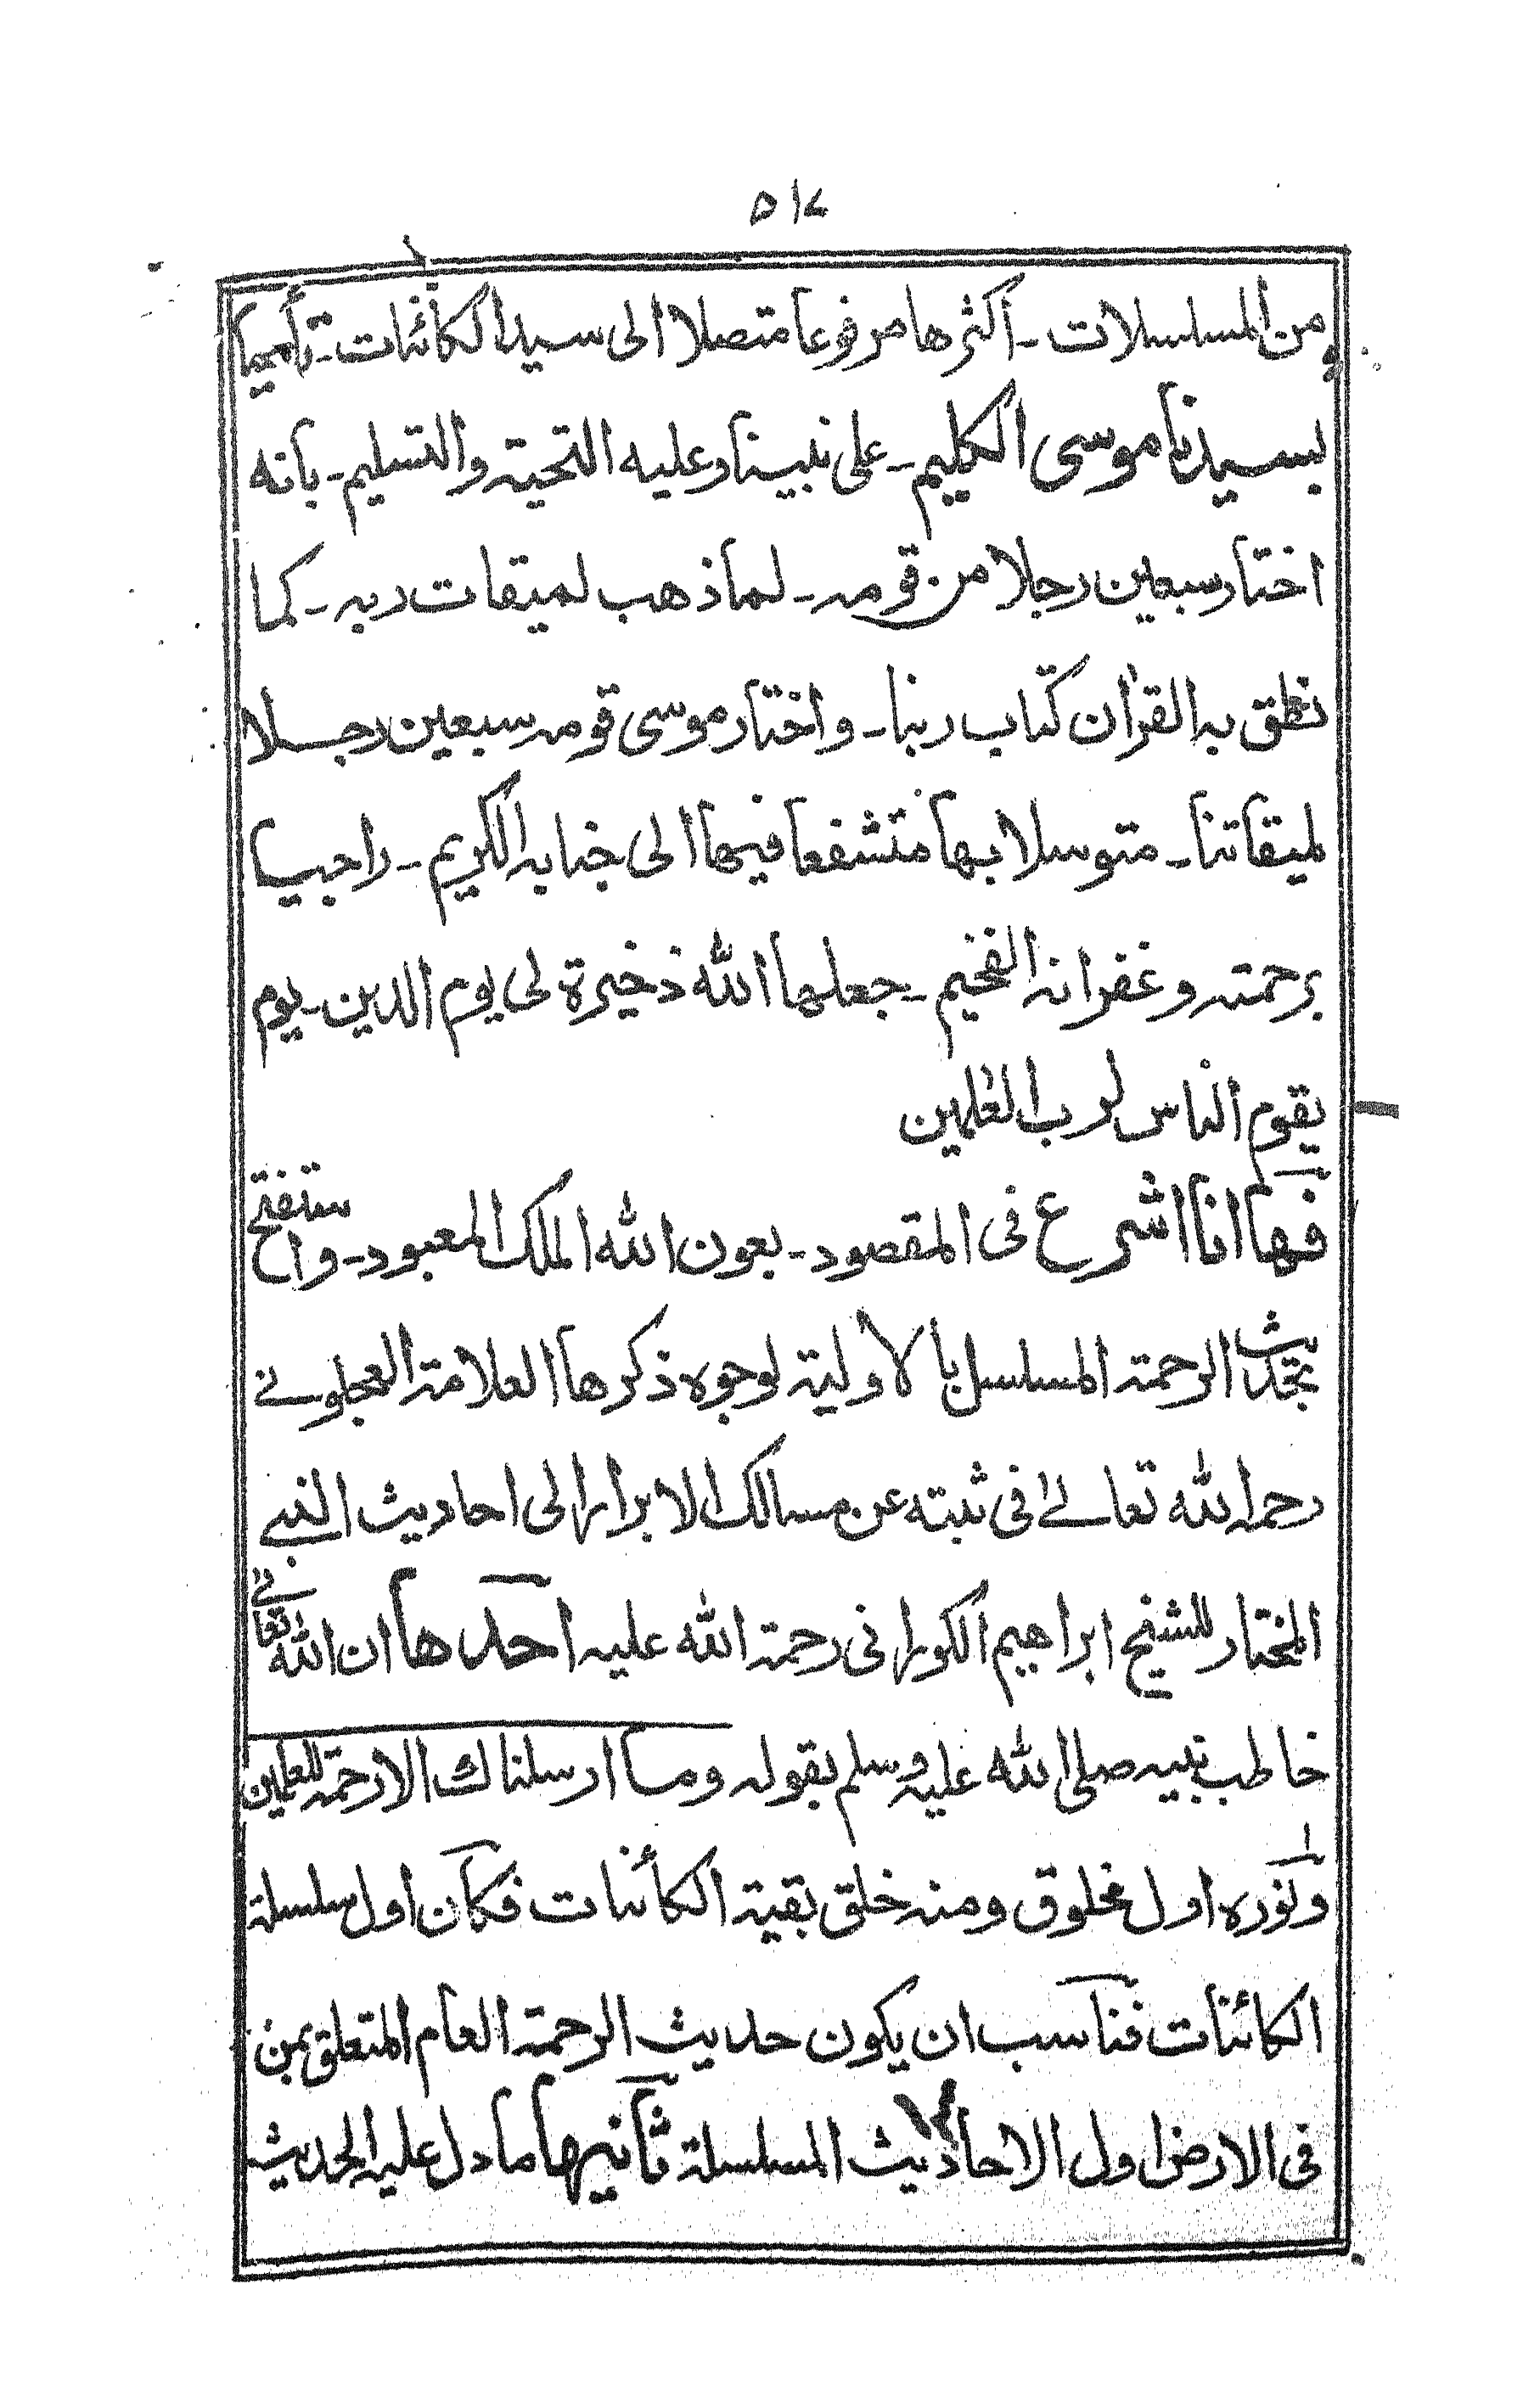 ٥١٧
من المسلسلات ـ اكثرها مرفوعا متصلا الى سيد الكائنات ـ
بسيدنا موسى الكليم ـ على نبينا وعليه التحية والتسليم ـ بانه
اختار سبعين رجلا من قومه ـ لما ذهب لميقات ربه ـ كما
نطق به القرآن كتاب ربنا ـ واختار موسى قومه سبعين رجلا
لميقاتنا ـ متوسلا بها متشفعا فيها الى جنابه الكريم ـ راجيا
برحمته وغفرانه الفخيم ـ جعلها الله ذخيرة لى يوم الدين ـ يوم
يقوم الناس لرب العٰلمين
فها انا اشرع فى المقصود ـ بعون الله الملك المعبود ـ واستفتح
بحديث الرحمة المسلسل بالاولية لوجوه ذكرها العلامة العجلونے
رحمه الله تعالےٰ فى ثبته عن مسالك الابرار الى احاديث النبے
المختار للشيخ ابراهيم الكورانى رحمة الله عليه احدها ان الله تعالےٰ
خاطب نبيه صلى الله عليه وسلم بقوله وما ارسلناك الا رحمة للعٰلمين
ونوره اول مخلوق ومنه خلق بقية الكائنات فكان اول سلسلة
الكائنات فناسب ان يكون حديث الرحمة العام المتعلق بمن
فى الارض اول الاحاديث المسلسلة ثانيها ما دل عليه الحديث